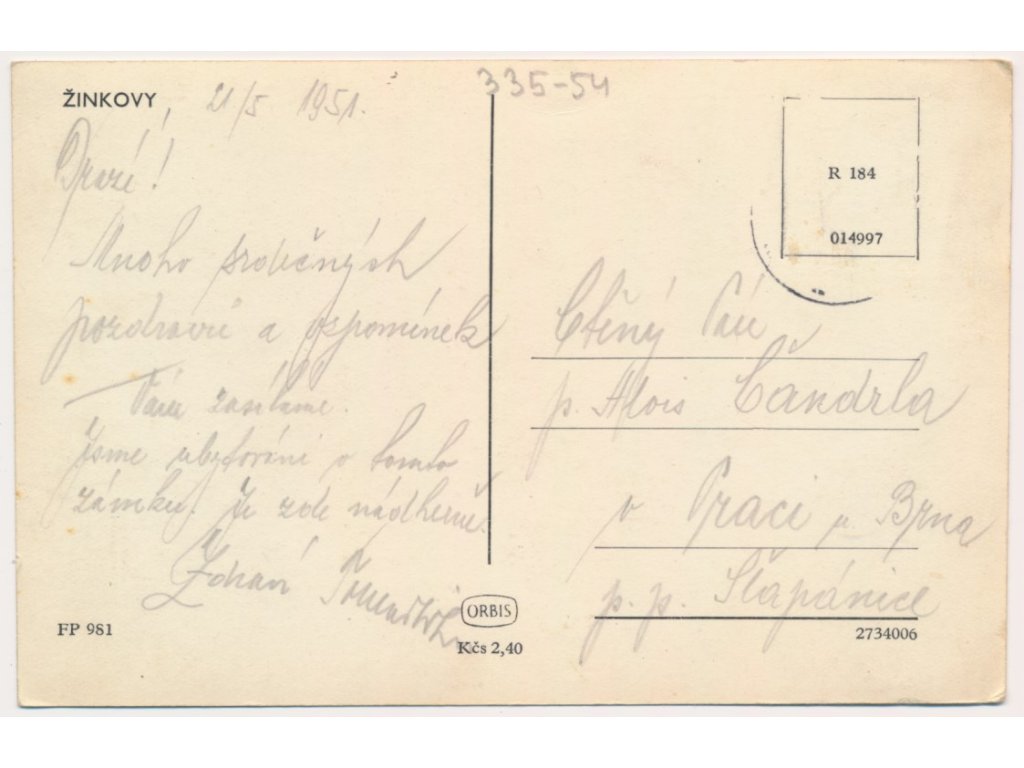 ŽINKOVY, 21/5 1951.
335-54
Drazí!
Mnoho srdečných
pozdravů a vzpomínek
Vám zasíláme.
Jsme ubytováni v tomto
zámku. Je zde nádherně.
Zdraví
R 184
014997
Ctěný Pán
p. Alois Čandrla
v Praci u Brna
p. p. Šlapánice
FP 981
ORBIS
Kčs 2,40
2734006